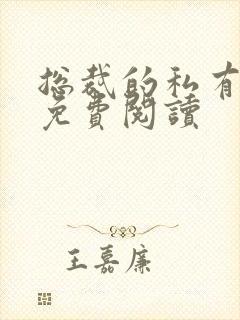 總裁的私有
免費閱讀
王嘉廉